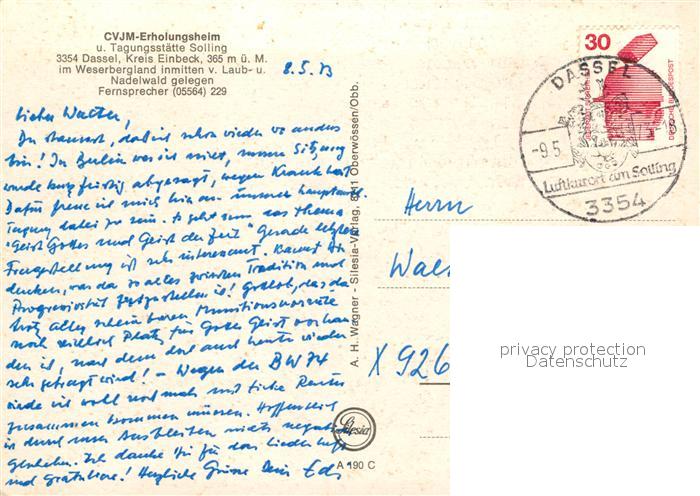 CVJM-Erholungsheim
u. Tagungsstätte Solling
3354 Dassel, Kreis Einbeck, 365 m ü. M.
im Weserbergland inmitten v. Laub- u.
Nadelwald gelegen
Fernsprecher (05564) 229
8.5.73
Lieber Walter,
Du staunst, daß ich schon wieder wo anders
bin! In Berlin war ich nicht, unsere Sitzung
wurde kurzfristig abgesagt, wegen Krankheit
Dafür freue ich mich hier an unserer hauptamtl.
Tagung dabei zu sein. Es geht um das Thema
"Geist Gottes und Geist der Zeit" Gerade letztere
Fragestellung ist sehr interessant. Kannst Dir
denken, was da so alles zwischen Tradition und
Progressivität festzustellen ist! Gottlob, das da
trotz aller scheinbaren
noch reichlich Platz für Gottes Geist vorhan
den ist, nach dem dort auch heute wieder
sehr gefragt wird! - Wegen der BW 74
werde ich wohl noch mal mit
zusammen kommen müssen. Hoffentlich
ist durch unser Ausbleiben nichts negatives
geschehen. Ich danke Dir für das Liederheft
und gratuliere! Herzliche Grüsse Dein Edi
A. H. Wagner - Silesia-Verlag, 8201 Oberwössen/Obb.
Silesia
A 190 C
30
DEUTSCHE BUNDESPOST
DASSEL
-9.5
Luftkurort am Solling
3354
Herrn
Wal
X 926
privacy protection
Datenschutz